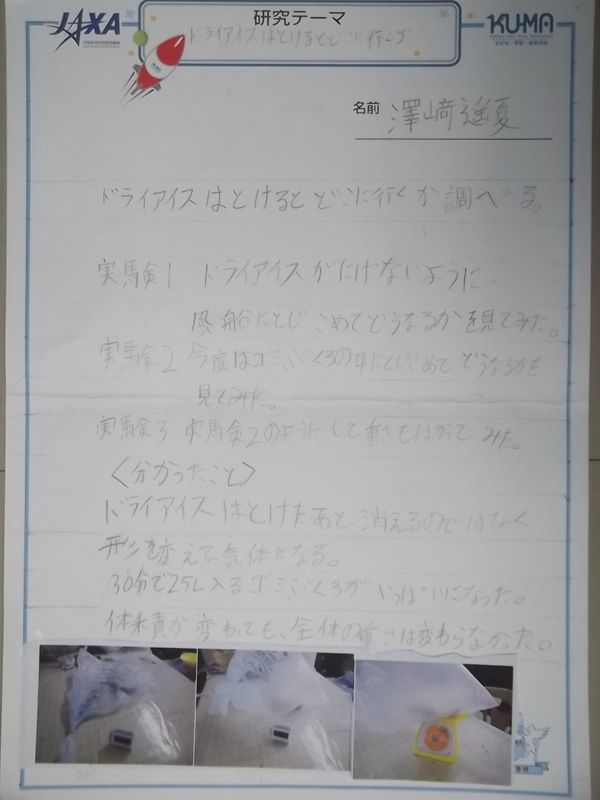 JAXA
研究テーマ
KUMA
ドライアイスはとけるとどこに行くか
名前 澤﨑遥夏
ドライアイスはとけるとどこに行くか調べる。
実験1 ドライアイスがにげないように、
風船にとじこめてどうなるかを見てみた。
実験2 今度はゴミぶくろの中にとじこめてどうなるかを
見てみた。
実験3 実験2のようにして重さもはかってみた。
〈分かったこと〉
ドライアイスはとけたあと、消えるのではなく
形を変えて、気体になる。
30分で25L入るゴミぶくろがいっぱいになった。
体積が変わっても、全体の重さは変わらなかった。